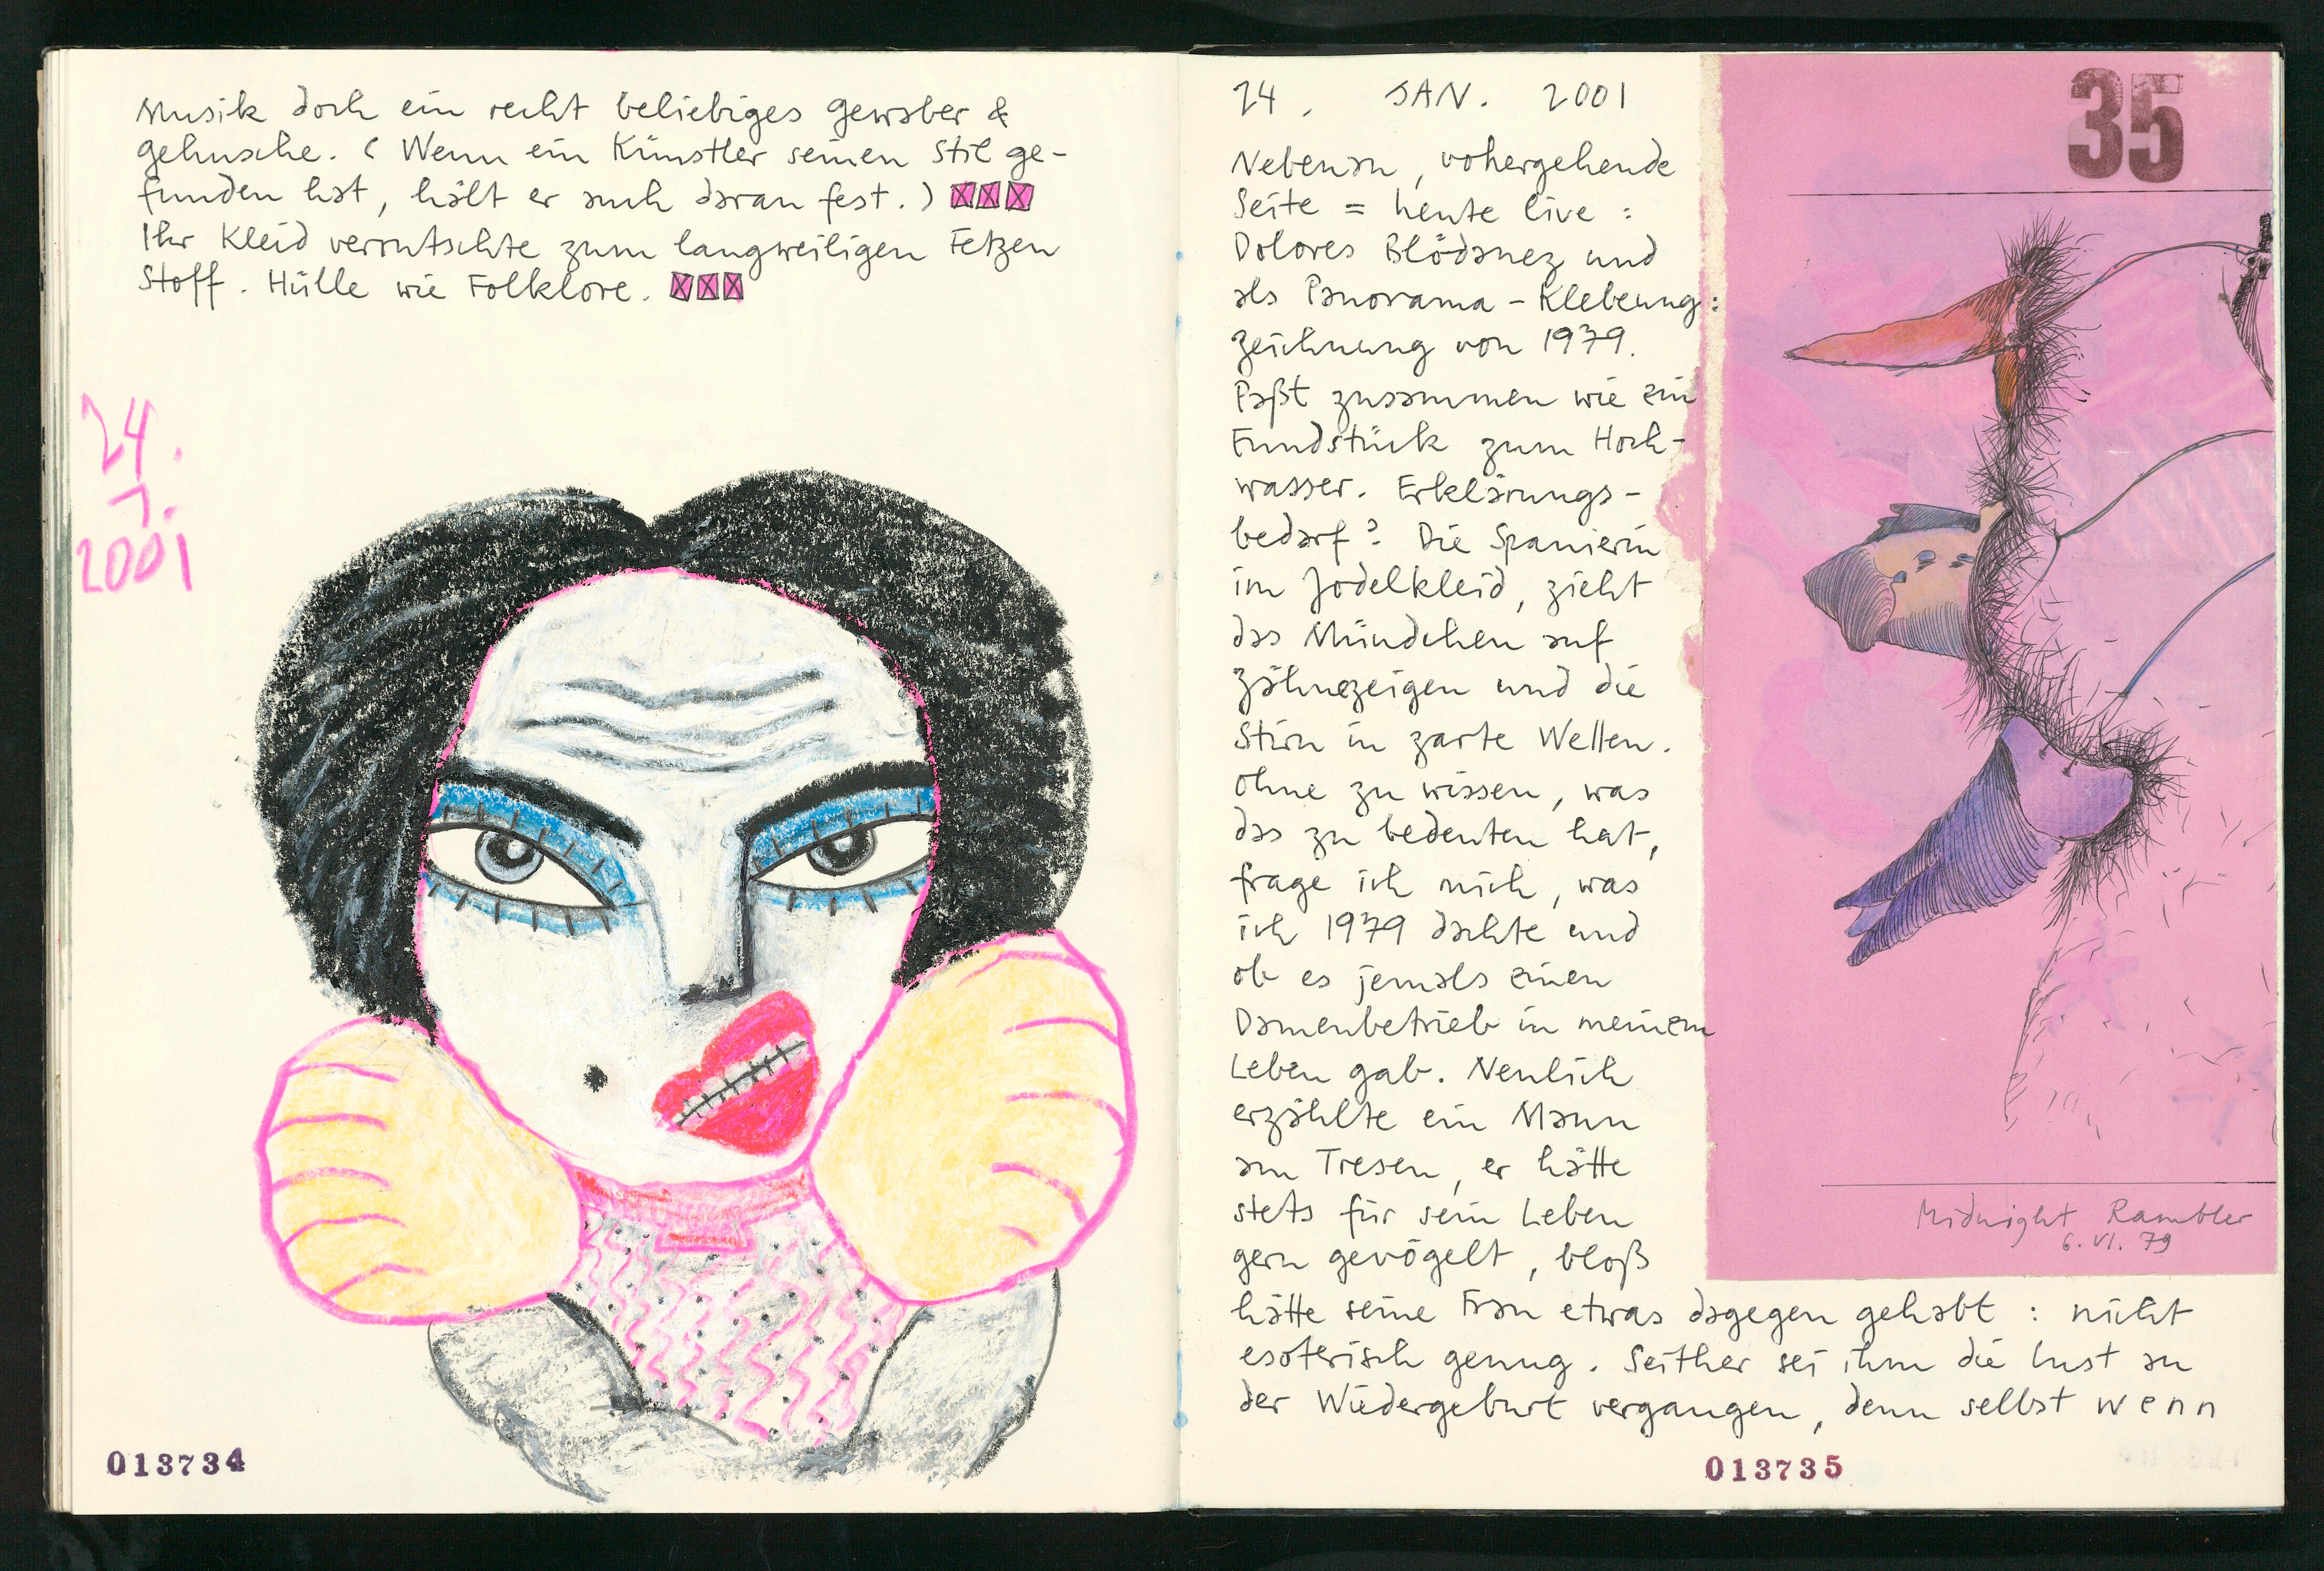 Musik doch ein recht beliebiges Gewaber &
Gehusche. (Wenn ein Künstler seinen Stil ge-
funden hat, hält er auch daran fest.)
Ihr Kleid verrutschte zum langweiligen Fetzen
Stoff. Hülle wie Folklore.
24.
1.
2001
013734
24. JAN. 2001
Nebenan, vohergehende
Seite = heute live:
Dolores Blödanez und
als Panorama-Klebeung:
Zeichnung von 1979.
Paßt zusammen wie ein
Fundstück zum Hoch-
wasser. Erklärungs-
bedarf? Die Spanierin
im Jodelkleid, zieht
das Mündchen auf
Zähnezeigen und die
Stirn in zarte Wellen.
Ohne zu wissen, was
das zu bedeuten hat,
frage ich mich, was
ich 1979 dachte und
ob es jemals einen
Damenbetrieb in meinem
Leben gab. Neulich
erzählte ein Mann
am Tresen, er hätte
stets für sein Leben
gern gevögelt, bloß
hätte seine Frau etwas dagegen gehabt: nicht
esoterisch genug. Seither sei ihm die Lust an
der Wiedergeburt vergangen, denn selbst wenn
013735
35
Midnight Rambler
6. VI. 79